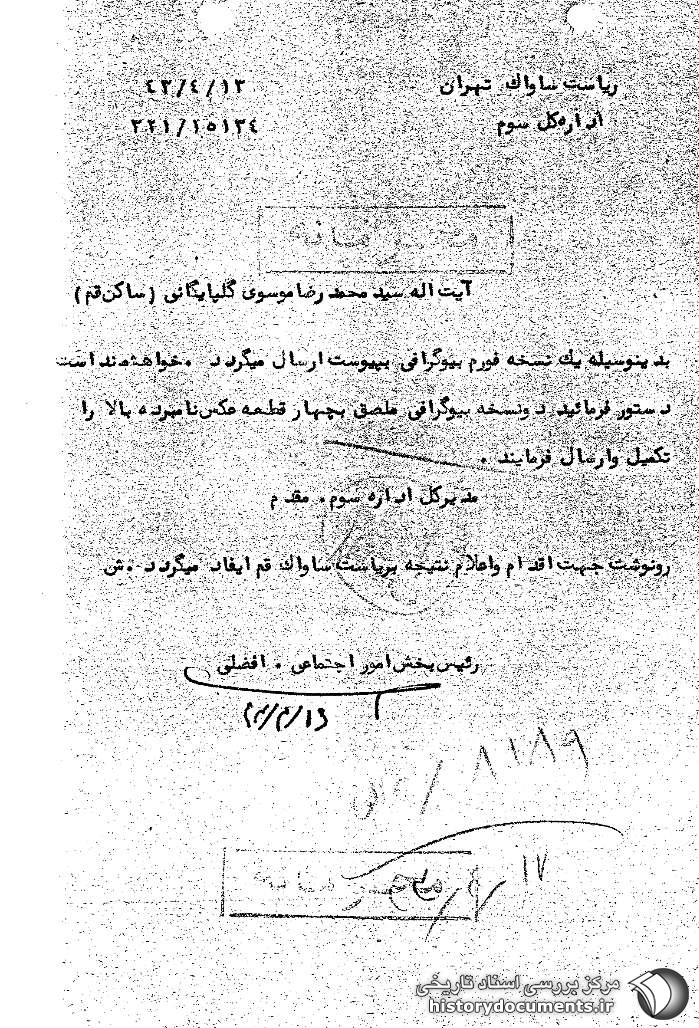 ریاست ساواک تهران
۴۳/۴/۱۳
اداره کل سوم
۳۲۱/۱۵۱۳۴
محرمانه
آیت اله سید محمد رضا موسوی گلپایگانی (ساکن قم)
بدینوسیله یک نسخه فورم بیوگرافی بپیوست ارسال میگردد . خواهشمند است
دستور فرمائید دونسخه بیوگرافی ملصق بچهار قطعه عکس نامبرده بالا را
تکمیل وارسال فرمایند .
مدیرکل اداره سوم . مقدم
رونوشت جهت اقدام واعلام نتیجه بریاست ساواک قم ایفاد میگردد . ش
رئیس بخش امور اجتماعی . افضلی
۸۱۸۹
۴/۱۷
محرمانه
مرکز بررسی اسناد تاریخی
historydocuments.ir